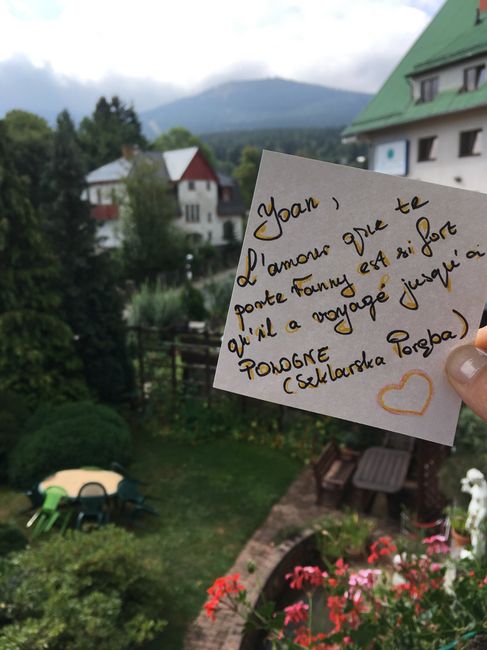 Yoan,
L'amour que te
porte Fanny est si fort
qu'il a voyagé jusqu'à
POLOGNE
(Seklarska Poręba)